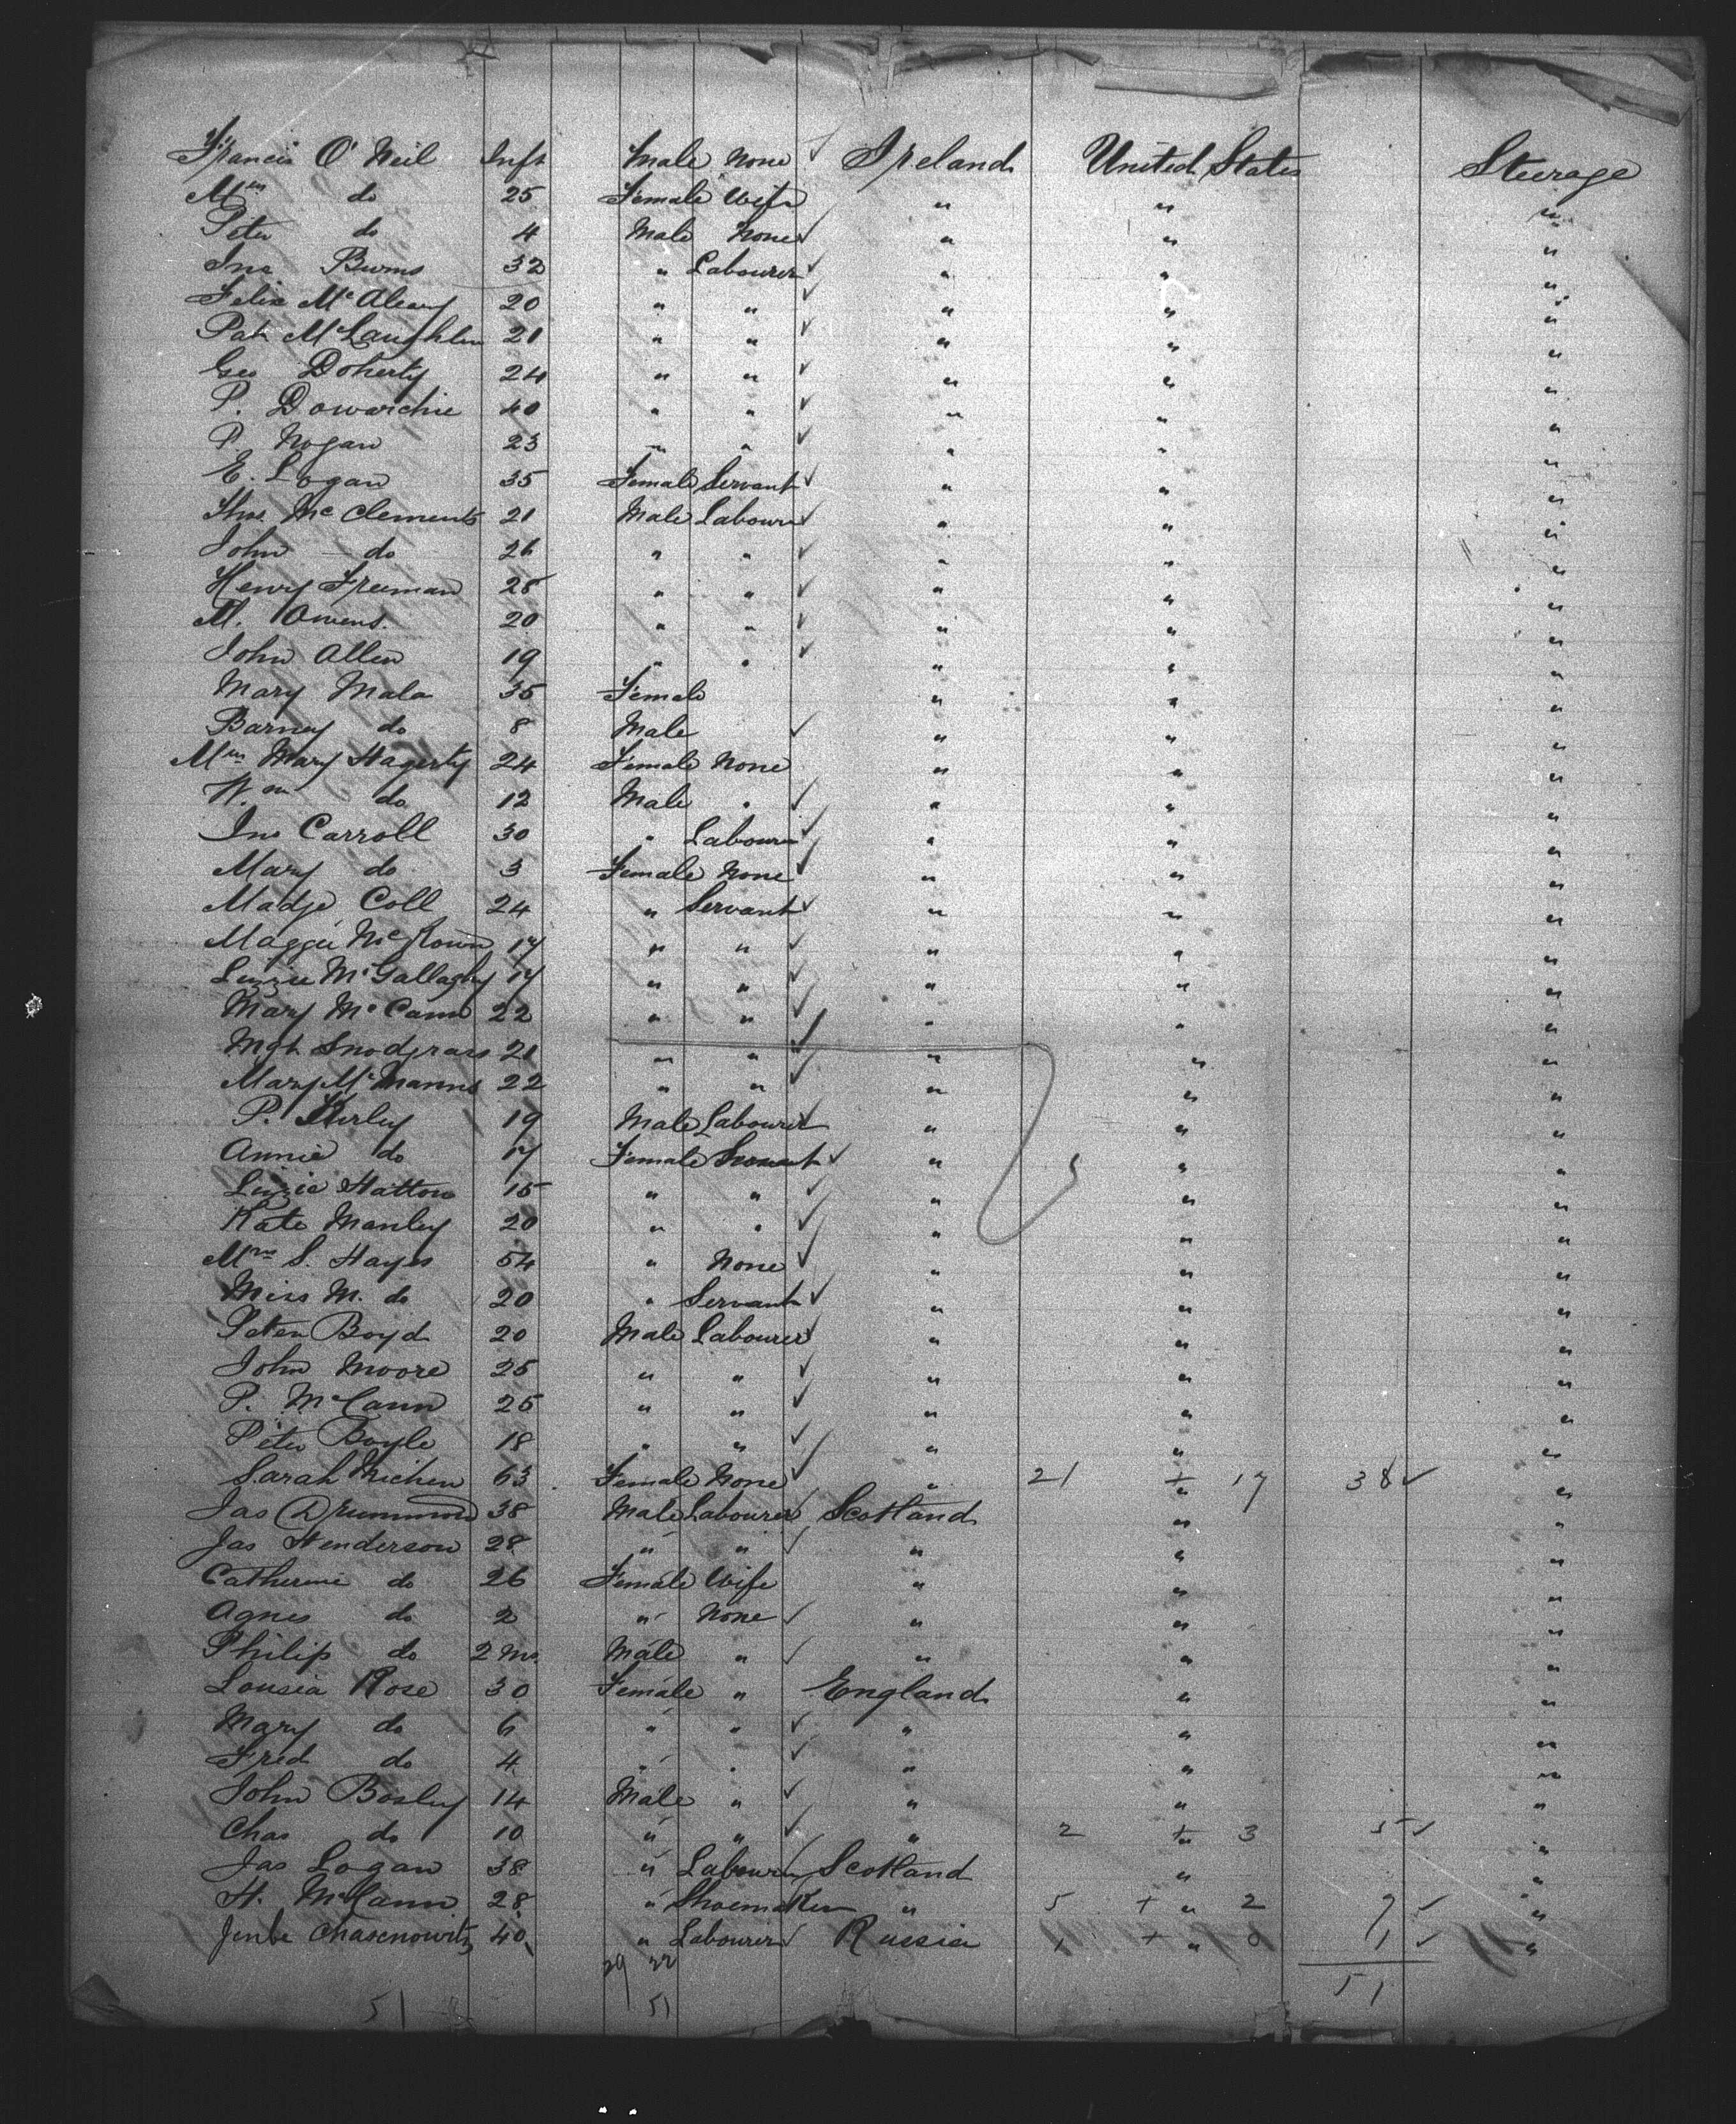 Francis O'Neil Inft Male None ✓ Ireland United States Steerage
Mrs do 25 Female Wife " " "
Peter do 4 Male None ✓ " " "
Jno Burns 32 " Labourer ✓ " " "
Felix McAleavy 20 " " ✓ " " "
Pat McLaughlin 21 " " ✓ " " "
Geo Doherty 24 " " ✓ " " "
P. Dowarchie 40 " " ✓ " " "
P. Hogan 23 " " ✓ " " "
E. Logan 35 Female Servant ✓ " " "
Thos. McClements 21 Male Labourer ✓ " " "
John do 26 " " ✓ " " "
Henry Freeman 28 " " ✓ " " "
M. Owens 20 " " ✓ " " "
John Allen 19 " " ✓ " " "
Mary Mala 35 Female " " "
Barney do 8 Male ✓ " " "
Mrs Mary Hagerty 24 Female None " " "
Wm do 12 Male " ✓ " " "
Jno Carroll 30 " Labourer ✓ " " "
Mary do 3 Female None ✓ " " "
Madge Coll 24 " Servant ✓ " " "
Maggie McKown 17 " " ✓ " " "
Lizzie McGallaghy 17 " " ✓ " " "
Mary McCann 22 " " ✓ " " "
Mgt Snodgrass 21 " " ✓ " " "
Mary McManns 22 " " ✓ " " "
P. 19 Male Labourer ✓ " " "
Annie do 17 Female Servant ✓ " " "
Lizzie Hatton 15 " " ✓ " " "
Kate Manley 20 " " ✓ " " "
Mrs S. Hayes 54 " None ✓ " " "
Miss M. do 20 " Servant ✓ " " "
Peter Boyd 20 Male Labourer ✓ " " "
John Moore 25 " " ✓ " " "
P. McCann 25 " " ✓ " " "
Peter Boyle 18 " " ✓ " " "
Sarah 63 Female None ✓ " 21 + " 17 38 ✓ "
Jas Drummond 38 Male Labourer ✓ Scotland " "
Jas Henderson 28 " " ✓ " " "
Catherine do 26 Female Wife " " "
Agnes do 2 " None ✓ " " "
Philip do 2 Mo. Male " ✓ " " "
Lousia Rose 30 Female " England " "
Mary do 6 " " ✓ " " "
Fred do 4 " " ✓ " " "
John Bosley 14 Male " ✓ " " "
Chas do 10 " " ✓ " 2 + " 3 5 ✓ "
Jas Logan 38 " Labourer ✓ Scotland " "
H. McCann 28 " Shoemaker " 5 + " 2 7 ✓ "
Chasenowitz 40 " Labourer ✓ Russia 1 + " 0 1 ✓ "
29 22
51 51 51